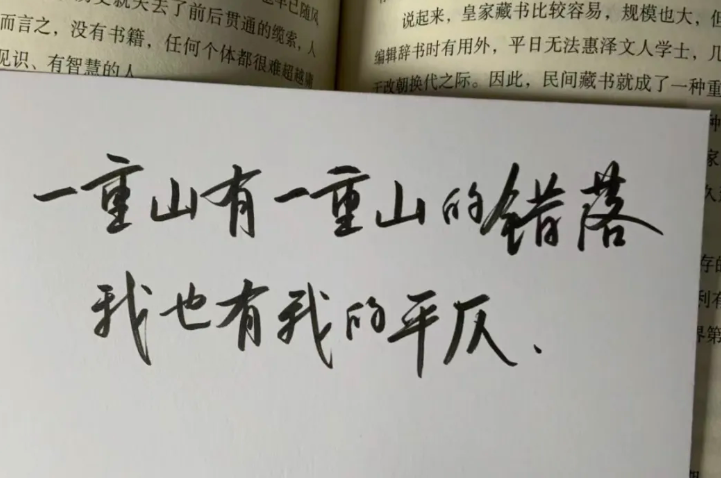 去了前后贯通的缆索，人
而言之，没有书籍，任何个体都很难超越
见识、有智慧的人
说起来，皇家藏书比较容易，规模也大，但
编辑辞书时有用外，平日无法惠泽文人学士，几
于改朝换代之际。因此，民间藏书就成了一种重
一重山有一重山的错落
我也有我的平仄、